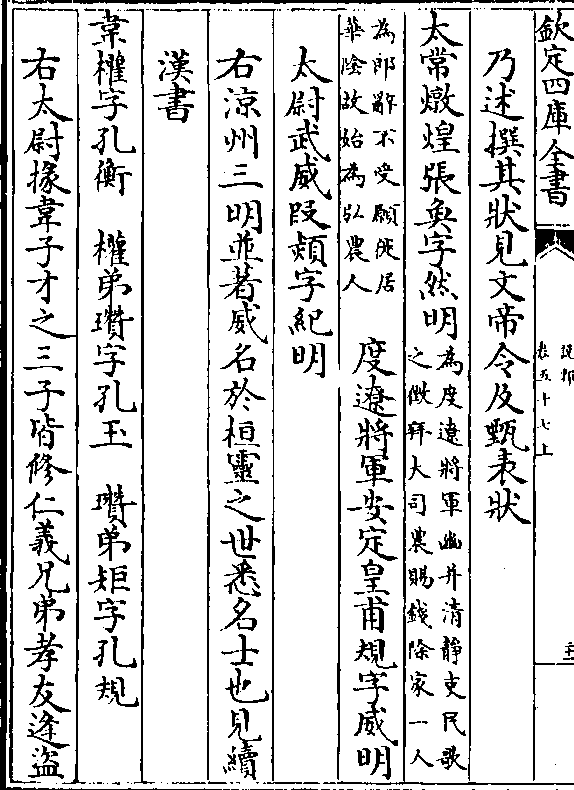 欽定四庫全書
説郛
卷五十七上
乃述撰其狀見文帝令及甄表狀
太常燉煌張奐字然明為度遼將軍幽并清靜吏民歌
之徵拜大司農賜錢除家一人
為郎辭不受願徙居
華陰故始為弘農人
度遼將軍安定皇甫規字威明
太尉武威段熲字紀明
右涼州三明並著威名於桓靈之世悉名士也見續
漢書
韋權字孔衡　權弟瓚字孔玉　瓚弟矩字孔規
右太尉掾韋子才之三子皆修仁義兄弟孝友逢盜